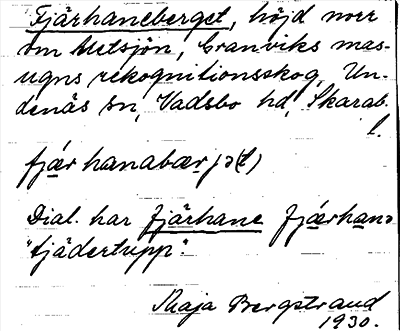 Fjärhaneberget, höjd norr
om Metsjön, Granviks mas-
ugns rekognitionsskog, Un-
denäs sn, Vadsbo hd, Skarab.
l.
fjær hanabærjə(t)
Dial. har fjärhane fjærhanə
"fjädertupp".
Maja Bergstrand
1930.